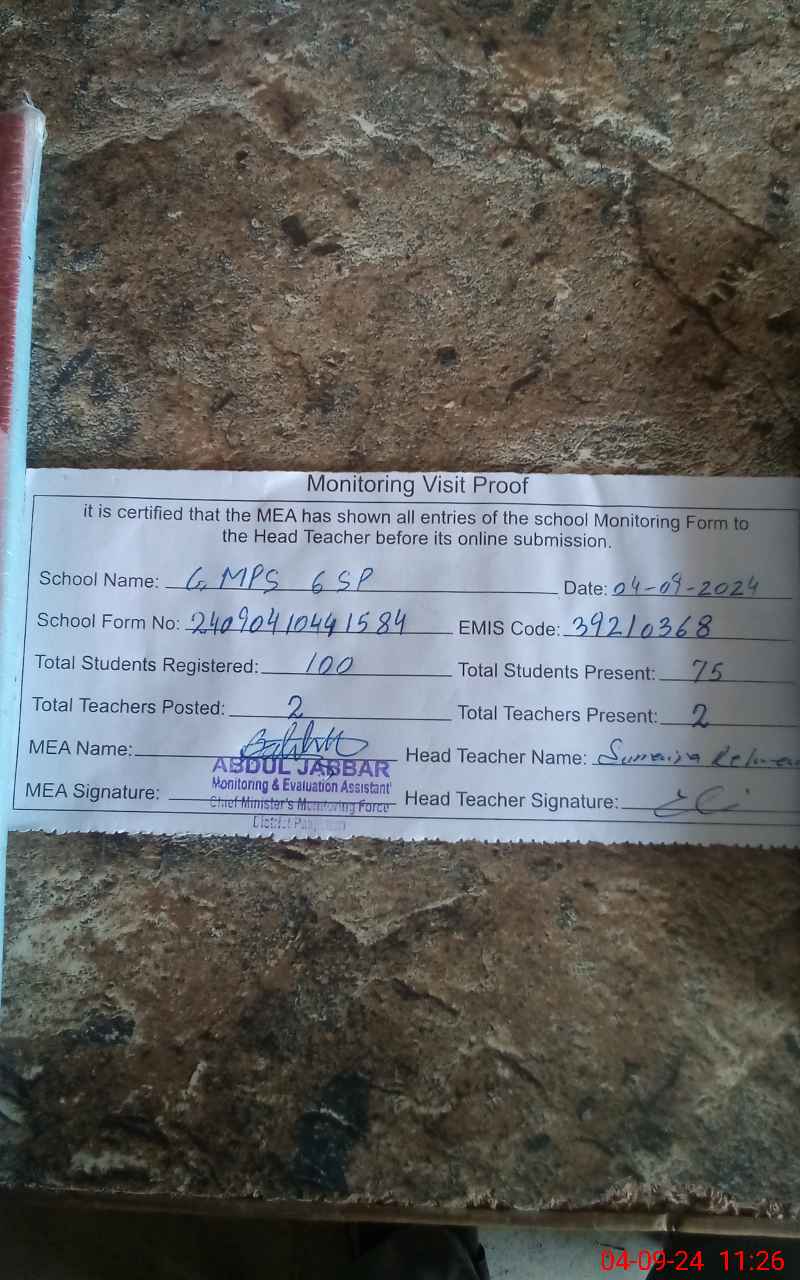 Monitoring Visit Proof
it is certified that the MEA has shown all entries of the school Monitoring Form to
the Head Teacher before its online submission.
School Name: G, MPS 6 SP Date: 04-09-2024
School Form No: 24090410441584 EMIS Code: 39210368
Total Students Registered: 100 Total Students Present: 75
Total Teachers Posted: 2 Total Teachers Present: 2
MEA Name: Head Teacher Name: Sumaira
ABDUL JABBAR
Monitoring & Evaluation Assistant
MEA Signature: Head Teacher Signature:
Chief Minister's Monitoring Force
District
04-09-24 11:26